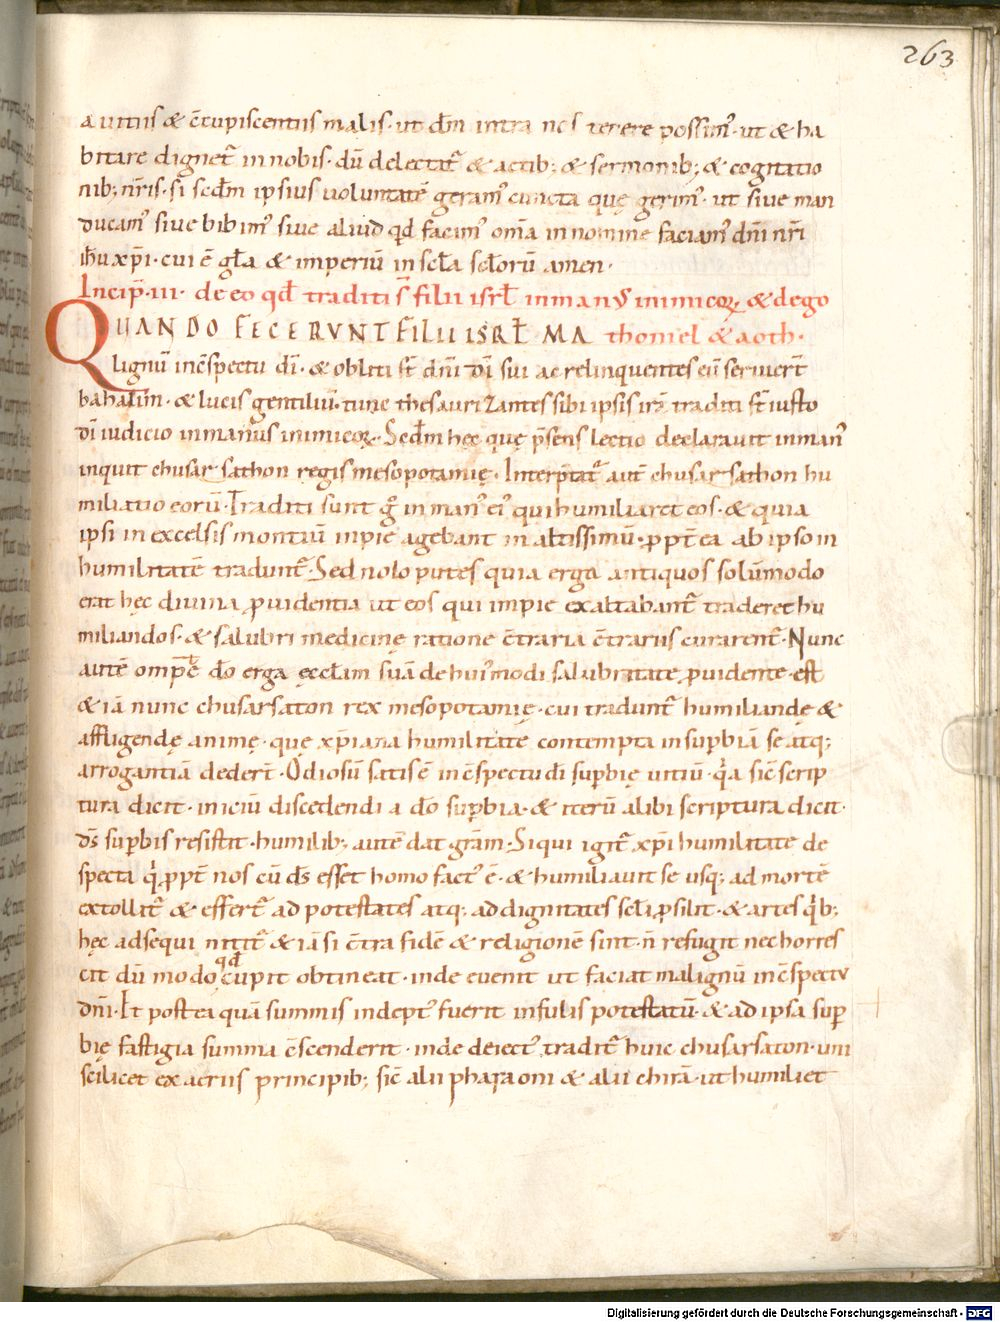 263
a uitiis & c̄cupiscentiis malis · ut dm̄ intra nos terere possim᷒ · ut & ha
bitare dignet᷒ in nobis · dū delectat᷒ & actib; & sermonib; & cogitatio
nib; nr̄is · si scdm̄ ipsius uoluntatē geram᷒ cuncta quę gerim᷒ · ut siue man
ducam᷒ siue bibim᷒ siue aliud qd̄ facim᷒ om̄a in nomine faciam᷒ dn̄i nr̄i
ih̄u xp̄i · cui ē gl̄a & imperiū in scl̄a scl̄orū amen ·
Incip̄ · iii · de eo qd̄ traditi s̄ filii isrl̄ in man᷒ inimicoꝝ & de go
QUANDO FECERVNT FILII ISRL̄ MA thoniel & aoth ·
lignū in c̄spectu dī · & obliti st̄ dn̄i dī sui ac relinquentes eū seruiert̄
bahalim · & lucis gentiliū · tunc thesaurizantes sibi ipsis irā traditi st̄ iusto
dī iudicio in manus inimicoꝝ · Sedm̄ hęc quę p̄sens lectio declarauit in man᷒
inquit chusarsathon regis mesopotamię · Interp̄tat᷒ aut̄ chusarsathon hu
miliatio eorū · Traditi sunt gͦ in man᷒ ei᷒ qui humiliaret eos · & quia
ipsi in excelsis montiū inpie agebant in altissimū · ꝓpt̄ea ab ipso in
humilitatē tradunt᷒ · Sed nolo putes quia erga antiquos solūmodo
erat hęc diuina ꝓuidentia ut eos qui impie exaltabant᷒ traderet hu
miliandos · & salubri medicinę ratione c̄traria c̄trariis curarent᷒ · Nunc
autē omp̄ē dō erga ęccl̄am suā de hui᷒modi salubritate ꝓuidente · est
& iā nunc chusarsaton rex mesopotamię · cui tradunt᷒ humiliandę &
affligendę animę · quę xp̄iana humilitate contempta in suꝑbiā se atq;
arrogantiā dedert̄ · Odiosū satis ē in c̄spectu dī suꝑbię uitiū · qa sic̄ scrip
tura dicit · iniciū discedendi a dō suꝑbia · & iterū alibi scriptura dicit ·
ds̄ suꝑbis resistit · humilib; autē dat gr̄am · Siqui igit᷒ xp̄i humilitate de
specta qi ꝓpt̄ nos cū ds̄ esset homo fact᷒ ē · & humiliauit se usq; ad mortē
extollit᷒ & effert᷒ ad potestates atq; ad dignitates scl̄i ꝓsilit · & artes qib;
hęc adsequi nitit᷒ & iā si c̄tra fidē & religionē sint · n̄ refugit nec horres
cit dū modo qd̄ cupit obtineat · inde euenit ut faciat malignū in c̄spectu
dn̄i · Et postea quā summis indept᷒ fuerit infulis potestatū · & ad ipsa suꝑ
bię fastigia summa c̄scenderit · inde deiect᷒ tradit᷒ huic chusarsaton · uni
scilicet ex aeriis principib; sic̄ alii pharaoni & alii chirā · ut humiliet
Digitalisierung gefördert durch die Deutsche Forschungsgemeinschaft - DFG